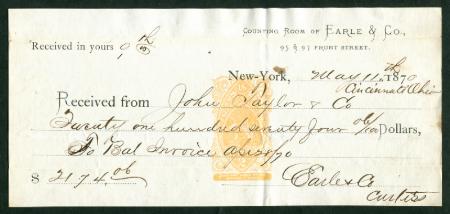 Counting Room of Earle & Co.,
95 & 97 Front Street.
Received in yours 9th
New-York, May 11th 1870
Cincinnati Ohio
Received from John Taylor & Co
Twenty one hundred seventy four 06/100 Dollars,
To Bal Invoice
$ 2174.06
Earle & Co
Curtis